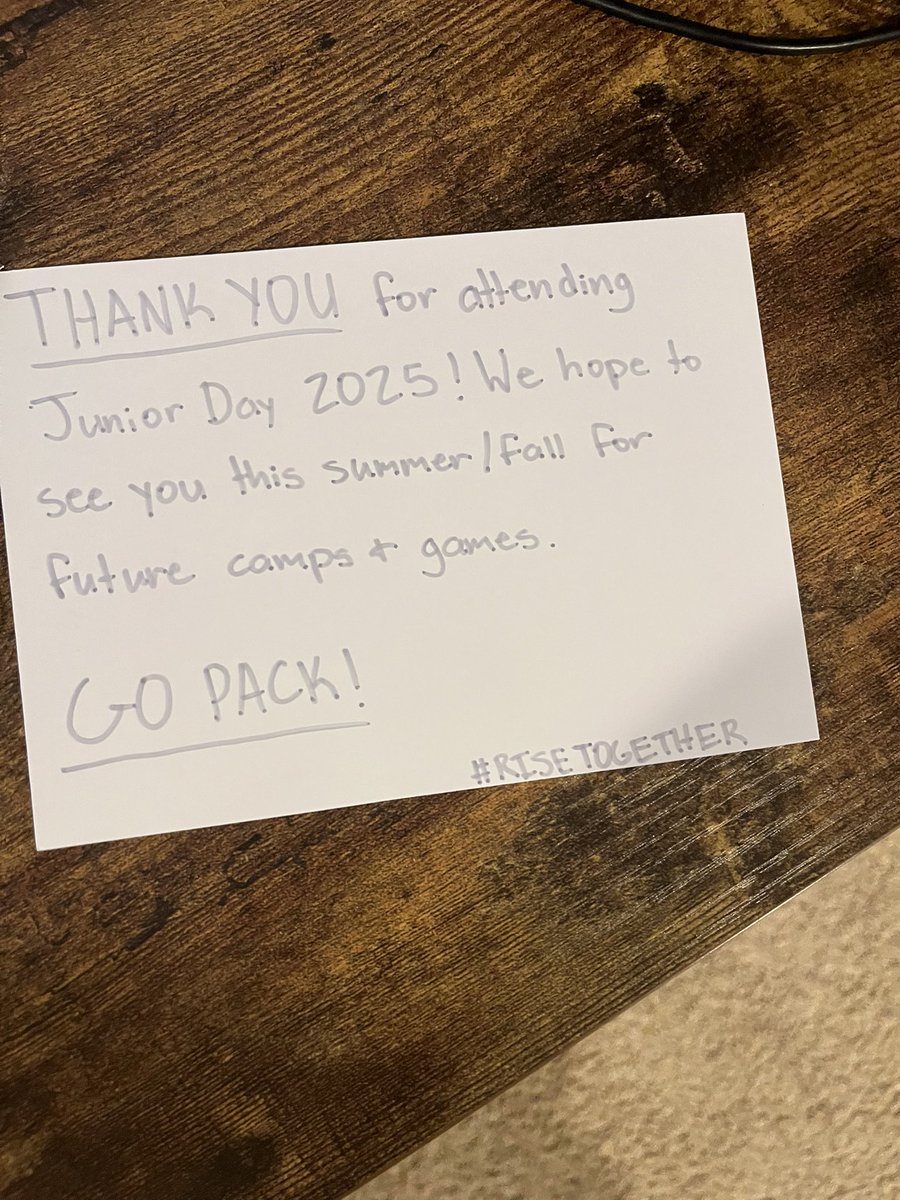 THANK YOU for attending
Junior Day 2025! We hope to
see you this summer/fall for
future camps + games.
GO PACK!
#RISETOGETHER